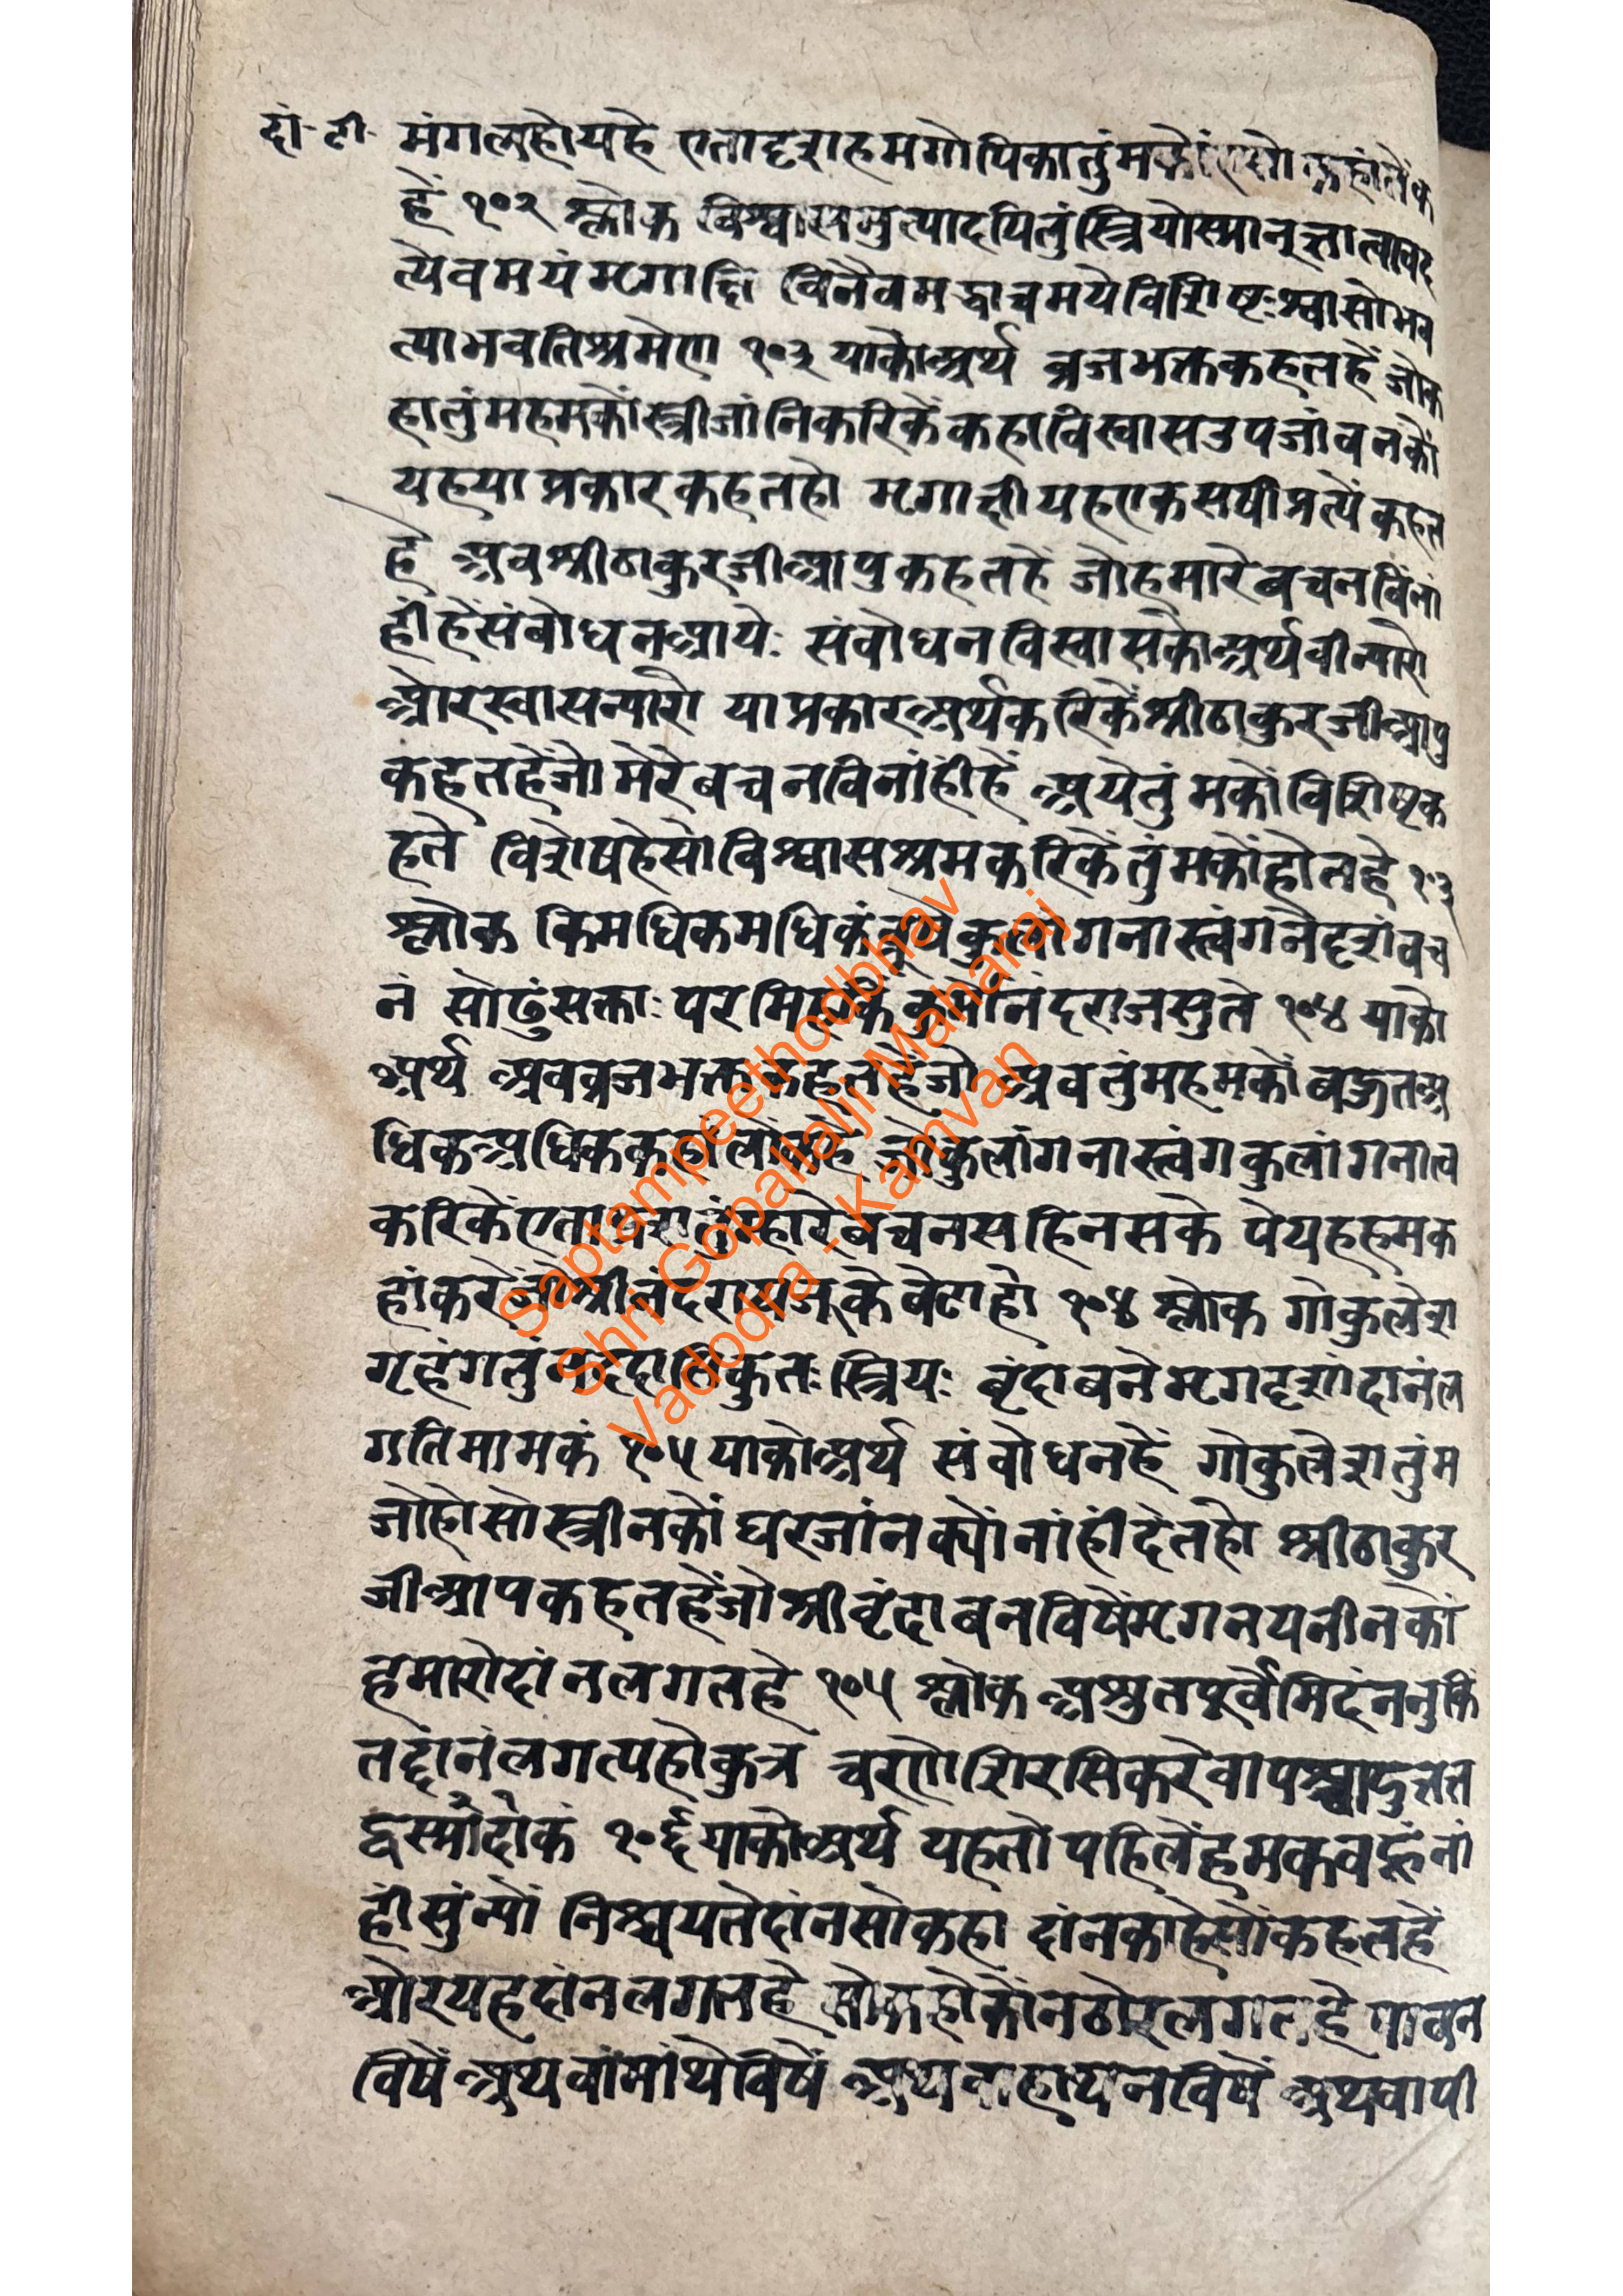 दां- टी- मंगलहोयहे एतादृशहमगोपिकातुंमकों
हें १०२ श्लोक विश्वासमुत्पादयितुंस्त्रियोस्मानुक्तात्वावद
त्येवमयंमृगाक्षि विनैवमद्वाचमयेविशिष्टःश्वासोभव
त्याभवतिश्रमेण १०३ याकोअर्थ व्रजभक्तकहतहें जोक
हातुंमहमकोंस्त्रीजांनिकरिकेंकहाविस्वासउपजांवनकों
यहयाप्रकारकहतहो मृगाक्षीयहएकसषीप्रत्यें कहत
हे अवश्रीठाकुरजीआपुकहतहें जोहमारेबचनविंनां
हींहेंसंबोधनआयेः संवोधनविस्वासकोअर्थवीन्यारो
ओरस्वासन्यारो याप्रकारअर्थकरिकेंश्रीठाकुरजीआपु
कहतहेंजो मेरेबचनविनांहींहें अयेतुंमकोंविशिष्टक
हते विशेषहेसोविश्वासश्रमकरिकेंतुंमकोंहोतहे १०३
श्लोक किमधिकमधिकंब्रूषेकुलांगनास्त्वंगनैदृशंवच
नं सोढुंसक्ताः परमिहकिंकुर्मोनंदराजसुते १०४ याको
अर्थ अवव्रजभक्तकहतहेंजो अवतुंमहमकों वहुतअ
धिकअधिककहांलोंकहे जोकुलांगनास्त्वंगकुलांगनात्व
करिकेंएतादृशतुंम्हारेबचनसहिनसके पेयहहमक
हांकरेंजोश्रीनंदरायजूकेवेटाहो १०४ श्लोक गोकुलेश
गृहंगतुंनददासिकुतःस्त्रियः बृंदाबनेमृगदृशांदानंल
गतिमामकं १०५ याकोअर्थ संवोधनहें गोकुलेशतुंम
जोहोसोस्त्रीनकों घरजांनक्योंनांहींदेतहो श्रीठाकुर
जीआपकहतहेंजोश्रीवृंदाबनविषेंमृगनयनीनकों
हमारोदांनलगतहे १०५ श्लोक अश्रुतपूर्वमिदंननुकिं
तद्दानंलगत्यहोकुत्र चरणेशिरसिकरेवापश्चादुतत
द्वस्मौदौकं १०६ याकोअर्थ यहतोपहिलेंहमकवहूंनां
हींसुंन्यों निश्चयतेदांनसोकहा दांनकाहेसोंकहतहें
ओरयहदांनलगतहे सोकहोकोंनठोरलगतहे पावन
विषें अथवांमांथेविषें अथवाहाथनविषें अथवापी